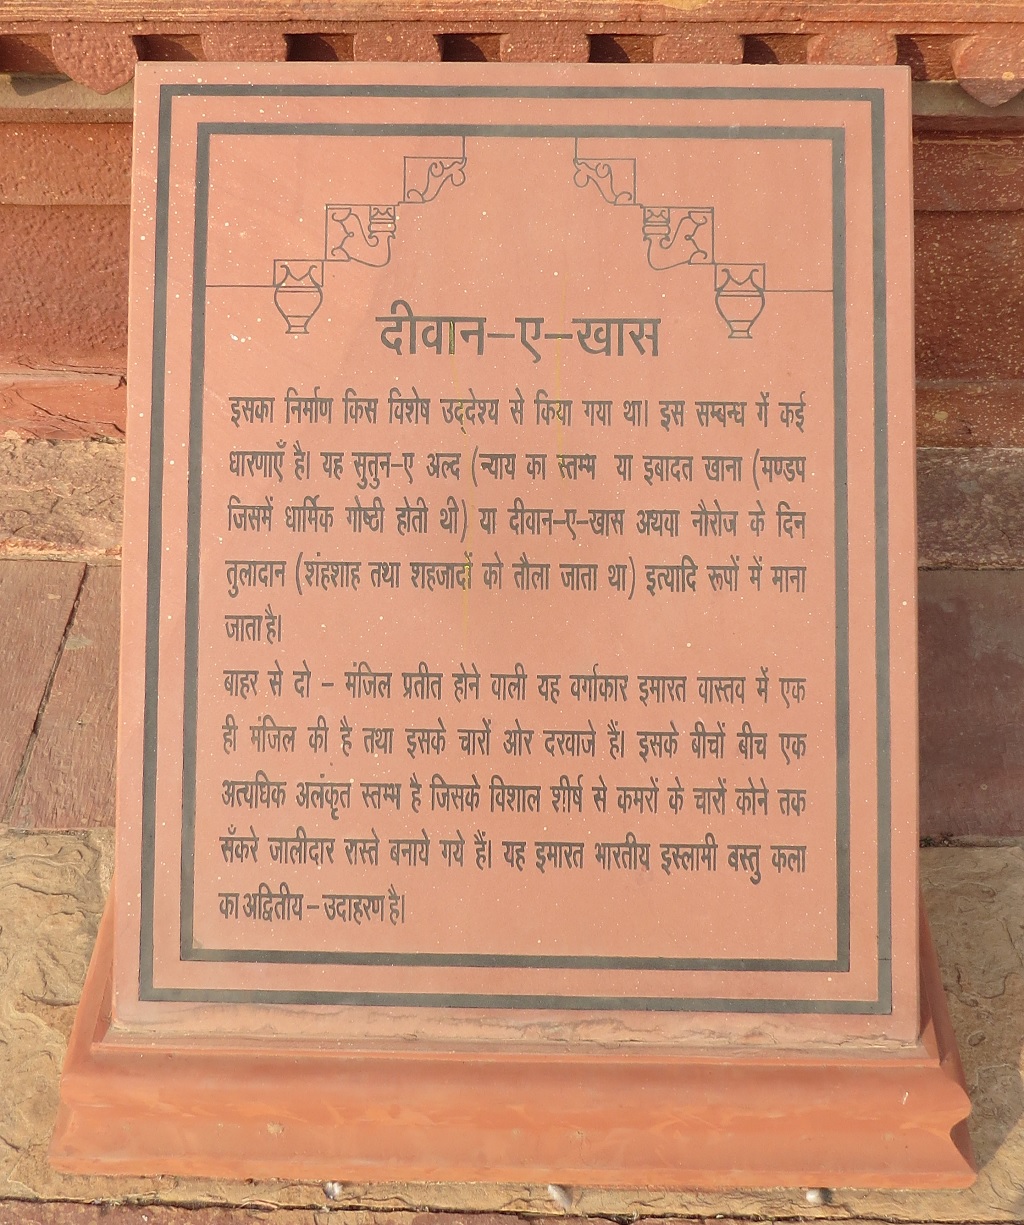 दीवान–ए–खास
इसका निर्माण किस विशेष उद्देश्य से किया गया था। इस सम्बन्ध में कई
धारणाएँ है। यह सुतुन–ए अल्द (न्याय का स्तम्भ या इबादत खाना (मण्डप
जिसमें धार्मिक गोष्ठी होती थी) या दीवान–ए–खास अथवा नौरोज के दिन
तुलादान (शंहशाह तथा शहजादों को तौला जाता था) इत्यादि रूपों में माना
जाता है।
बाहर से दो – मंजिल प्रतीत होने वाली यह वर्गाकार इमारत वास्तव में एक
ही मंजिल की है तथा इसके चारों ओर दरवाजे हैं। इसके बीचों बीच एक
अत्यधिक अलंकृत स्तम्भ है जिसके विशाल शीर्ष से कमरों के चारों कोने तक
सँकरे जालीदार रास्ते बनाये गये हैं। यह इमारत भारतीय इस्लामी वस्तु कला
का अद्वितीय – उदाहरण है।